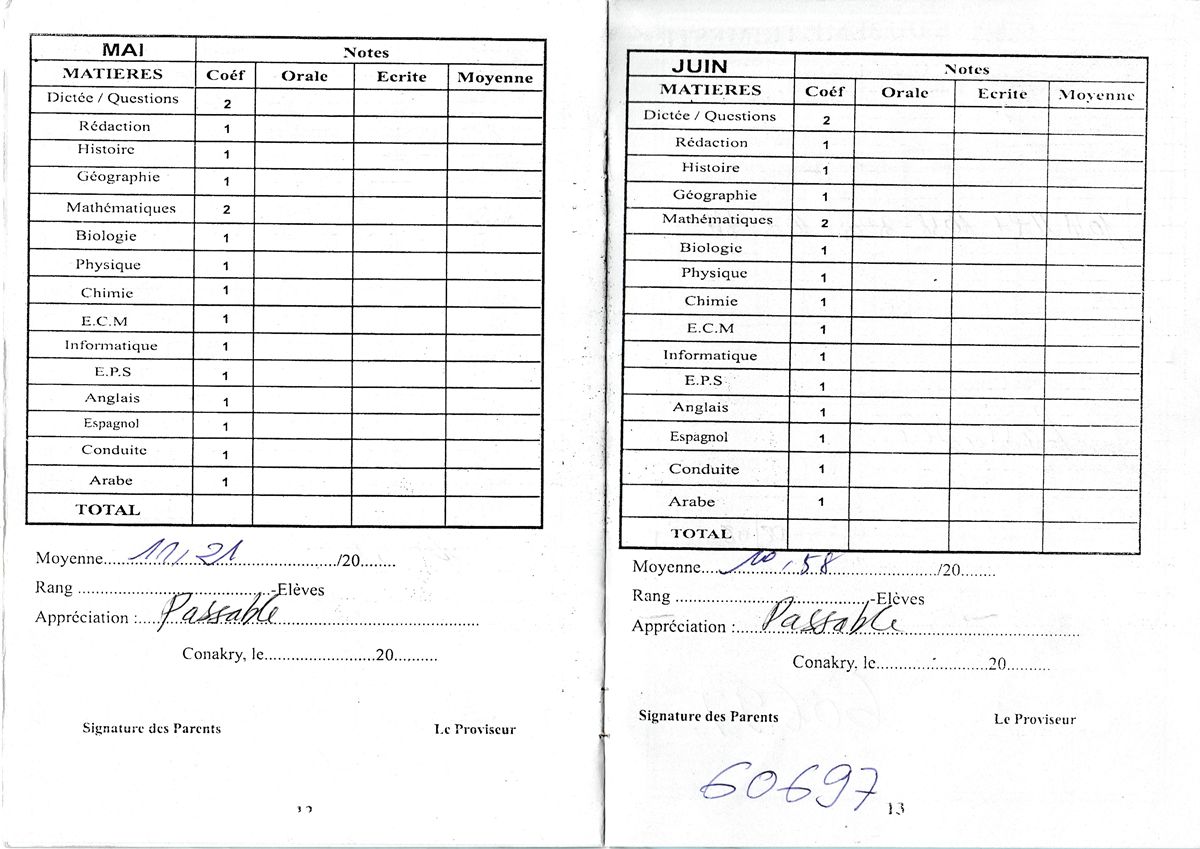 MAI Notes
MATIERES Coéf Orale Ecrite Moyenne
Dictée / Questions 2
Rédaction 1
Histoire 1
Géographie 1
Mathématiques 2
Biologie 1
Physique 1
Chimie 1
E.C.M 1
Informatique 1
E.P.S 1
Anglais 1
Espagnol 1
Conduite 1
Arabe 1
TOTAL
Moyenne....11,21............/20........
Rang ..............................-Elèves
Appréciation :....Passable..............................
Conakry, le........................20..........
Signature des Parents Le Proviseur
12
JUIN Notes
MATIERES Coéf Orale Ecrite Moyenne
Dictée / Questions 2
Rédaction 1
Histoire 1
Géographie 1
Mathématiques 2
Biologie 1
Physique 1
Chimie 1
E.C.M 1
Informatique 1
E.P.S 1
Anglais 1
Espagnol 1
Conduite 1
Arabe 1
TOTAL
Moyenne....10,58............/20........
Rang ..............................-Elèves
Appréciation :....Passable..............................
Conakry, le........................20..........
Signature des Parents Le Proviseur
60697
13